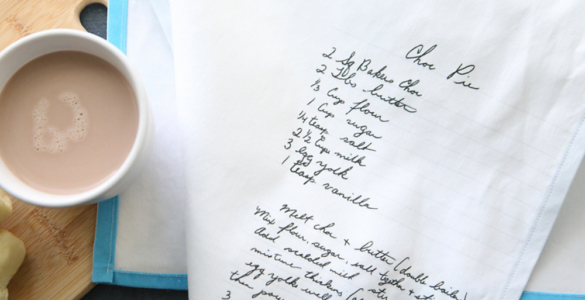 Choc Pie
2 sq Bakers Choc
2 Tbs butter
1/3 cup flour
1 cup sugar
1/4 teasp salt
2 1/2 cup milk
3 egg yolk
1 teasp vanilla
Melt choc + butter (double boiler)
Mix flour, sugar, salt togeth +
Add scalded milk
mixture thicken
egg yolks well
then pour
3